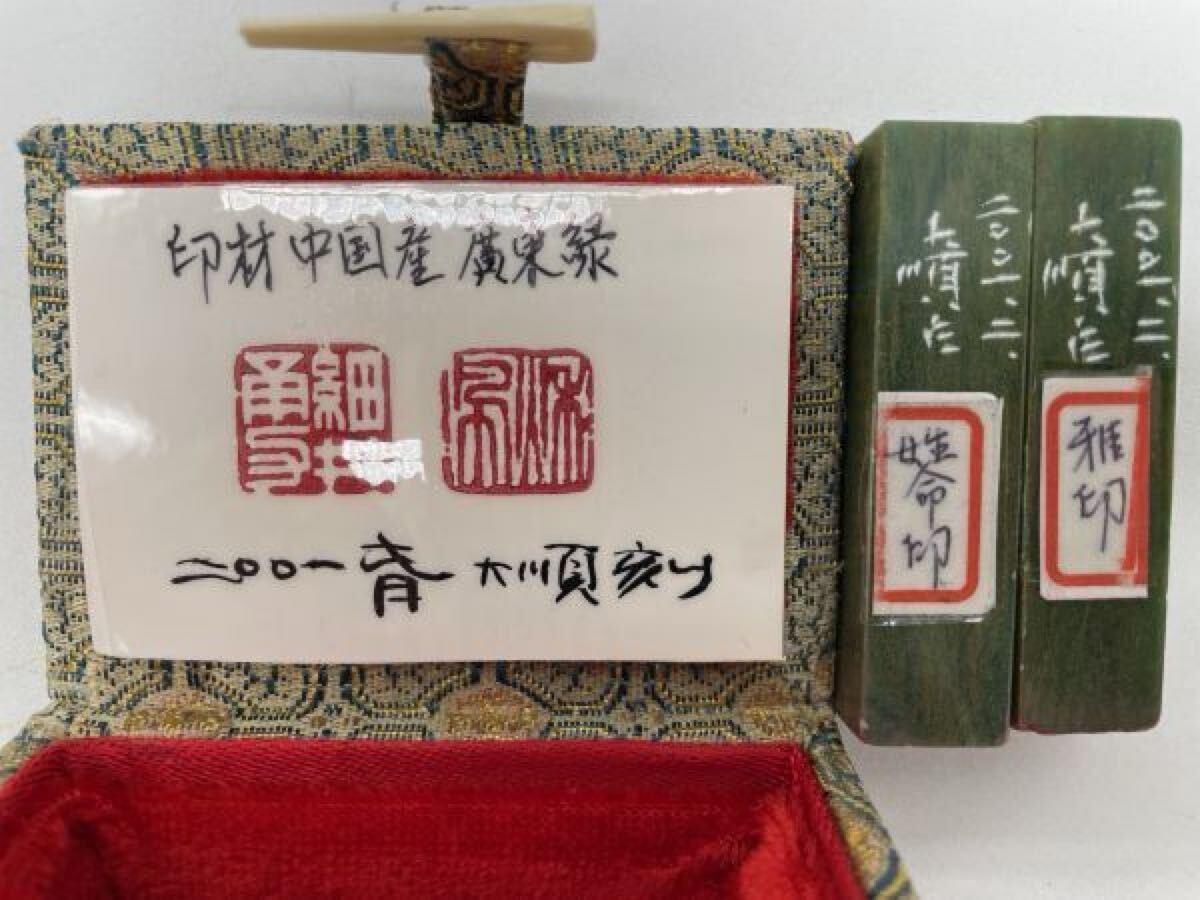 印材中国産 廣東緑
細井
勇
二〇〇一春 大順刻
二〇〇一.二.
大順作
姓命印
二〇〇一.二.
大順作
雅印